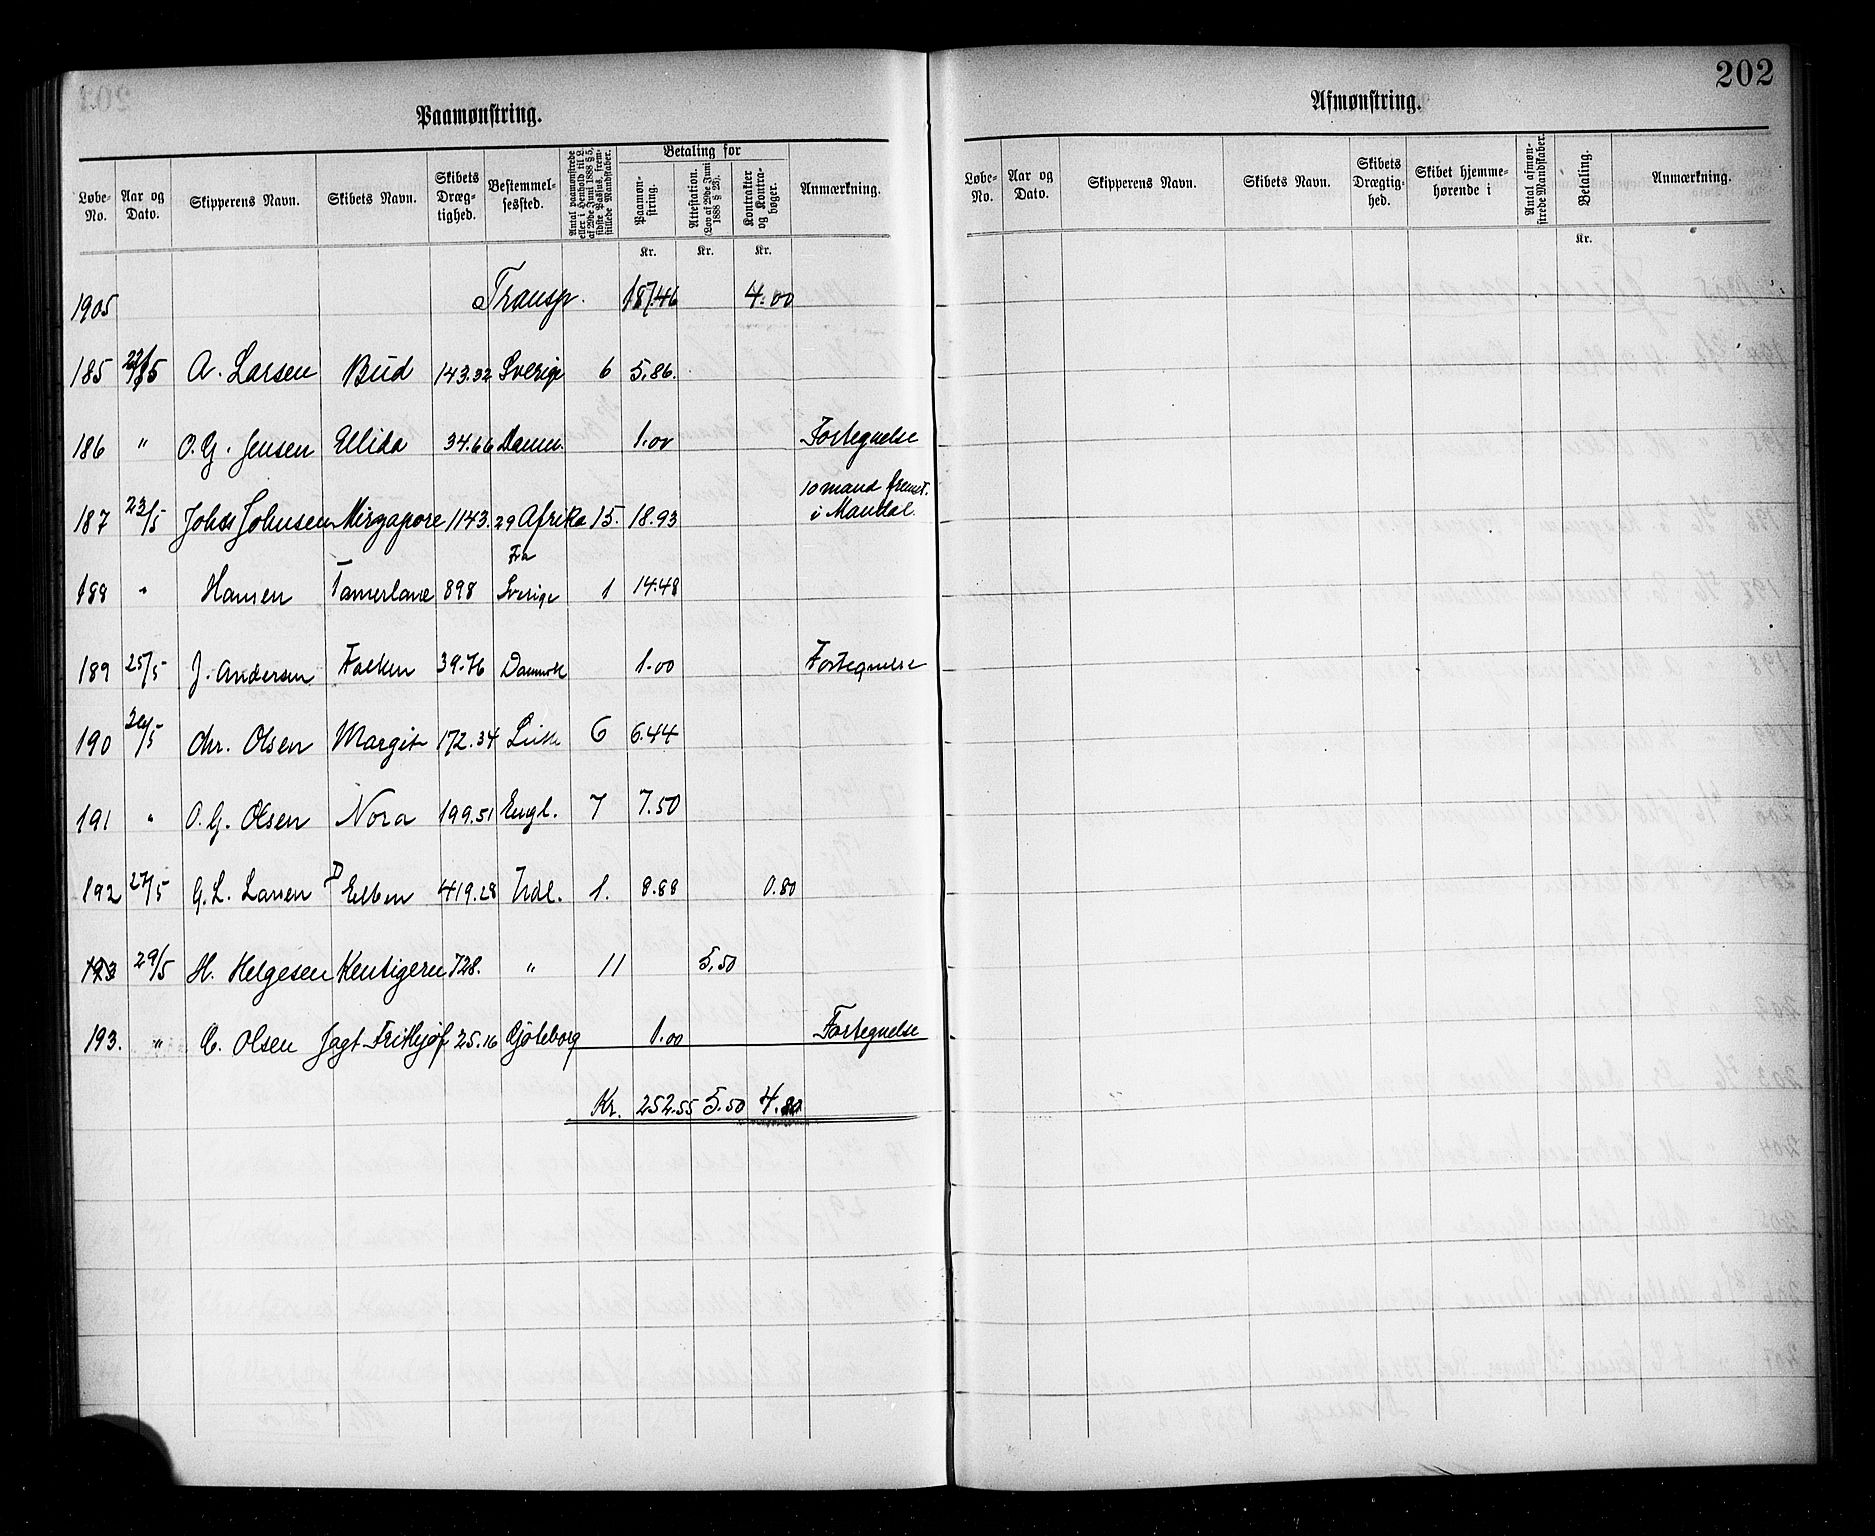 202
Paamønstring.
Afmønstring.
Løbe-No. | Aar og Dato. | Skipperens Navn. | Skibets Navn. | Skibets Dræg-tighed. | Bestemmel-sessted. | Antal paamønstrede eller i Henhold til L. af 29de Juni 1888 § 5, sidste Passus, frem-stillede Mandskaber. | Betaling for | Paamøn-string. | Attestation. (Lov af 29de Juni 1888 § 23). | Kontrakter og Kontra-bøger. | Anmærkning.
Kr. | Kr. | Kr.
1905 Transp. 187.46 4.00
185 23/5 A. Larsen Bud 143.32 Sverige 6 5.86.
186 " O. G. Jensen Ellida 34.66 Danm. 1.00 Fortegnelse
187 23/5 Johs Johnsen Mirzapore 1143.29 Afrika 15. 18.93 10 mand fremst. i Mandal.
188 " Hansen Tamerlane 898 Fra Sverige 1 14.48
189 25/5 J. Andersen Falken 39.76 Danmark 1.00 Fortegnelse
190 26/5 Chr. Olsen Margit 172.34 6 6.44
191 " O. G. Olsen Nora 199.51 Engl. 7 7.50
192 27/5 G. L. Larsen D Elben 419.28 Udl. 1. 8.88 0.80
193 29/5 H. Helgesen Kentigern 728. " 11 5,50
193. " C. Olsen Jagt Frithjof 25.16 Gjøteborg 1.00 Fortegnelse
Kr. 252.55 5.50 4.80
Løbe-No. | Aar og Dato. | Skipperens Navn. | Skibets Navn. | Skibets Drægtig-hed. | Skibet hjemme-hørende i | Antal afmøn-strede Mandskaber. | Betaling. | Anmærkning.
Kr.